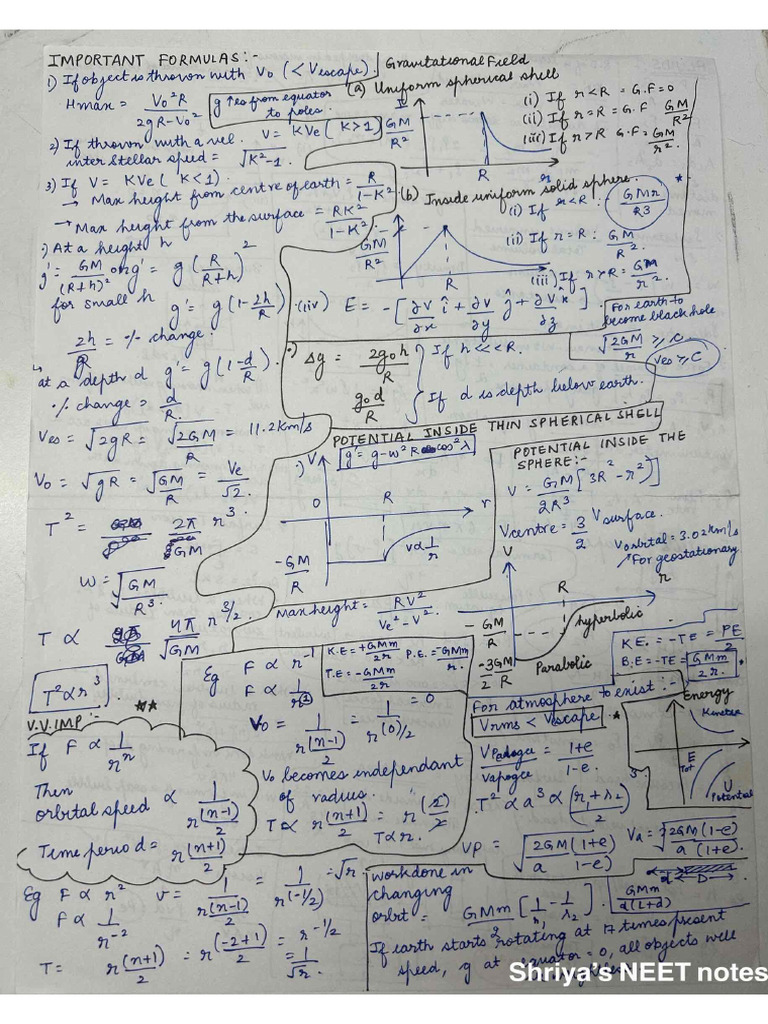 IMPORTANT FORMULAS:-
1) If object is thrown with V₀ (< Vescape).
Hmax = V₀²R / 2gR-V₀²
g ↑es from equator
to poles.
2) If thrown with a vel. V = KVe (K>1)
inter Stellar speed = √K²-1.
3) If V = KVe (K<1).
→ Max height from centre of earth = R / 1-K²
→ Max height from the surface = RK² / 1-K²
At a height h
g' = GM / (R+h)² or g' = g (R / R+h)²
for small h g' = g (1-2h/R)
2h/R = % change.
at a depth d g' = g (1-d/R).
% change = d/R.
Ves = √2gR = √2GM/R = 11.2 km/s
V₀ = √gR = √GM/R = Ve/√2.
T² = 2π/√GM r³
ω = √GM/R³
T ∝ 4π/√GM r^3/2.
T² ∝ r³
V.V.IMP :-
If F ∝ 1/rⁿ
Then
orbital speed ∝ 1 / r^(n-1)/2
Time period = r^(n+1)/2
Eg F ∝ r² v = 1 / r^(n-1)/2 = 1 / r^(-1/2) = √r
F ∝ 1 / r⁻²
T = r^(n+1)/2 = r^(-2+1)/2 = r^-1/2 = 1/√r.
Gravitational Field
(a) Uniform spherical shell
GM/R²
R
r
(i) If r<R = G.F=0
(ii) If r=R = G.F GM/R²
(iii) If r>R G.F = GM/r².
(b) Inside uniform solid sphere.
GM/R²
R
(i) If r<R : GMr/R³ *
(ii) If r=R : GM/R².
(iii) If r>R = GM/r².
(iv) E = -[∂V/∂x î + ∂V/∂y ĵ + ∂V/∂z k̂].
For earth to
become black hole
√2GM/r ≥ C
Ves ≥ C
Δg = 2g₀h/R } If h<<<R.
g₀d/R } If d is depth below earth.
POTENTIAL INSIDE THIN SPHERICAL SHELL
g' = g-ω²R cos²λ
V
0
R
r
-GM/R
V∝1/r
Max height = RV² / Ve²-V².
POTENTIAL INSIDE THE
SPHERE:-
V = GM/2R³ [3R²-r²]
Vcentre = 3/2 Vsurface.
Vorbital = 3.02 km/s
For geostationary
V
R
r
-GM/R
-3GM/2R
hyperbolic
Parabolic
Eg F ∝ r⁻¹
F ∝ 1/r¹
V₀ = 1 / r^(n-1)/2 = 1 / r^(0)/2 = 0
V₀ becomes independant
of radius.
T ∝ r^(n+1)/2 = r^(2/2)
T ∝ r.
K.E = +GMm/2r P.E. = -GMm/r.
T.E = -GMm/2r
K.E. = -TE = PE/2
B.E = -TE = GMm/2r.
For atmosphere to exist :-
Vrms < Vescape *
Vperigee / Vapogee = 1+e / 1-e.
T² ∝ a³ ∝ (r₁+r₂ / 2)³.
Energy
Kinetic
E Tot
U
Potential
Vp = √2GM/a (1+e / 1-e)
Va = √2GM(1-e) / a(1+e).
workdone in
changing
orbit = GMm/2 [1/r₁ - 1/r₂].
D
GMm
If earth starts rotating at 17 times present
speed, g at equator = 0, all objects well
Shriya's NEET notes